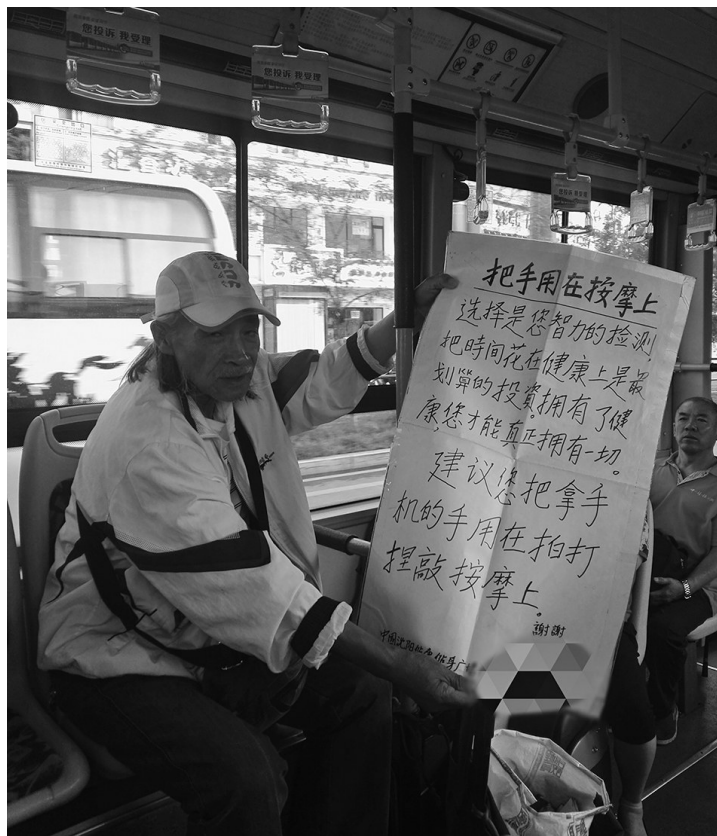 您投诉 我受理
您投诉 我受理
您投诉 我受理
把手用在按摩上
选择是您智力的捡测，
把時间花在健康上是最
划算的投資。拥有了健
康，您才能真正拥有一切。
建议您把拿手
机的手用在拍打
捏敲按摩上。
謝謝
中国沈阳